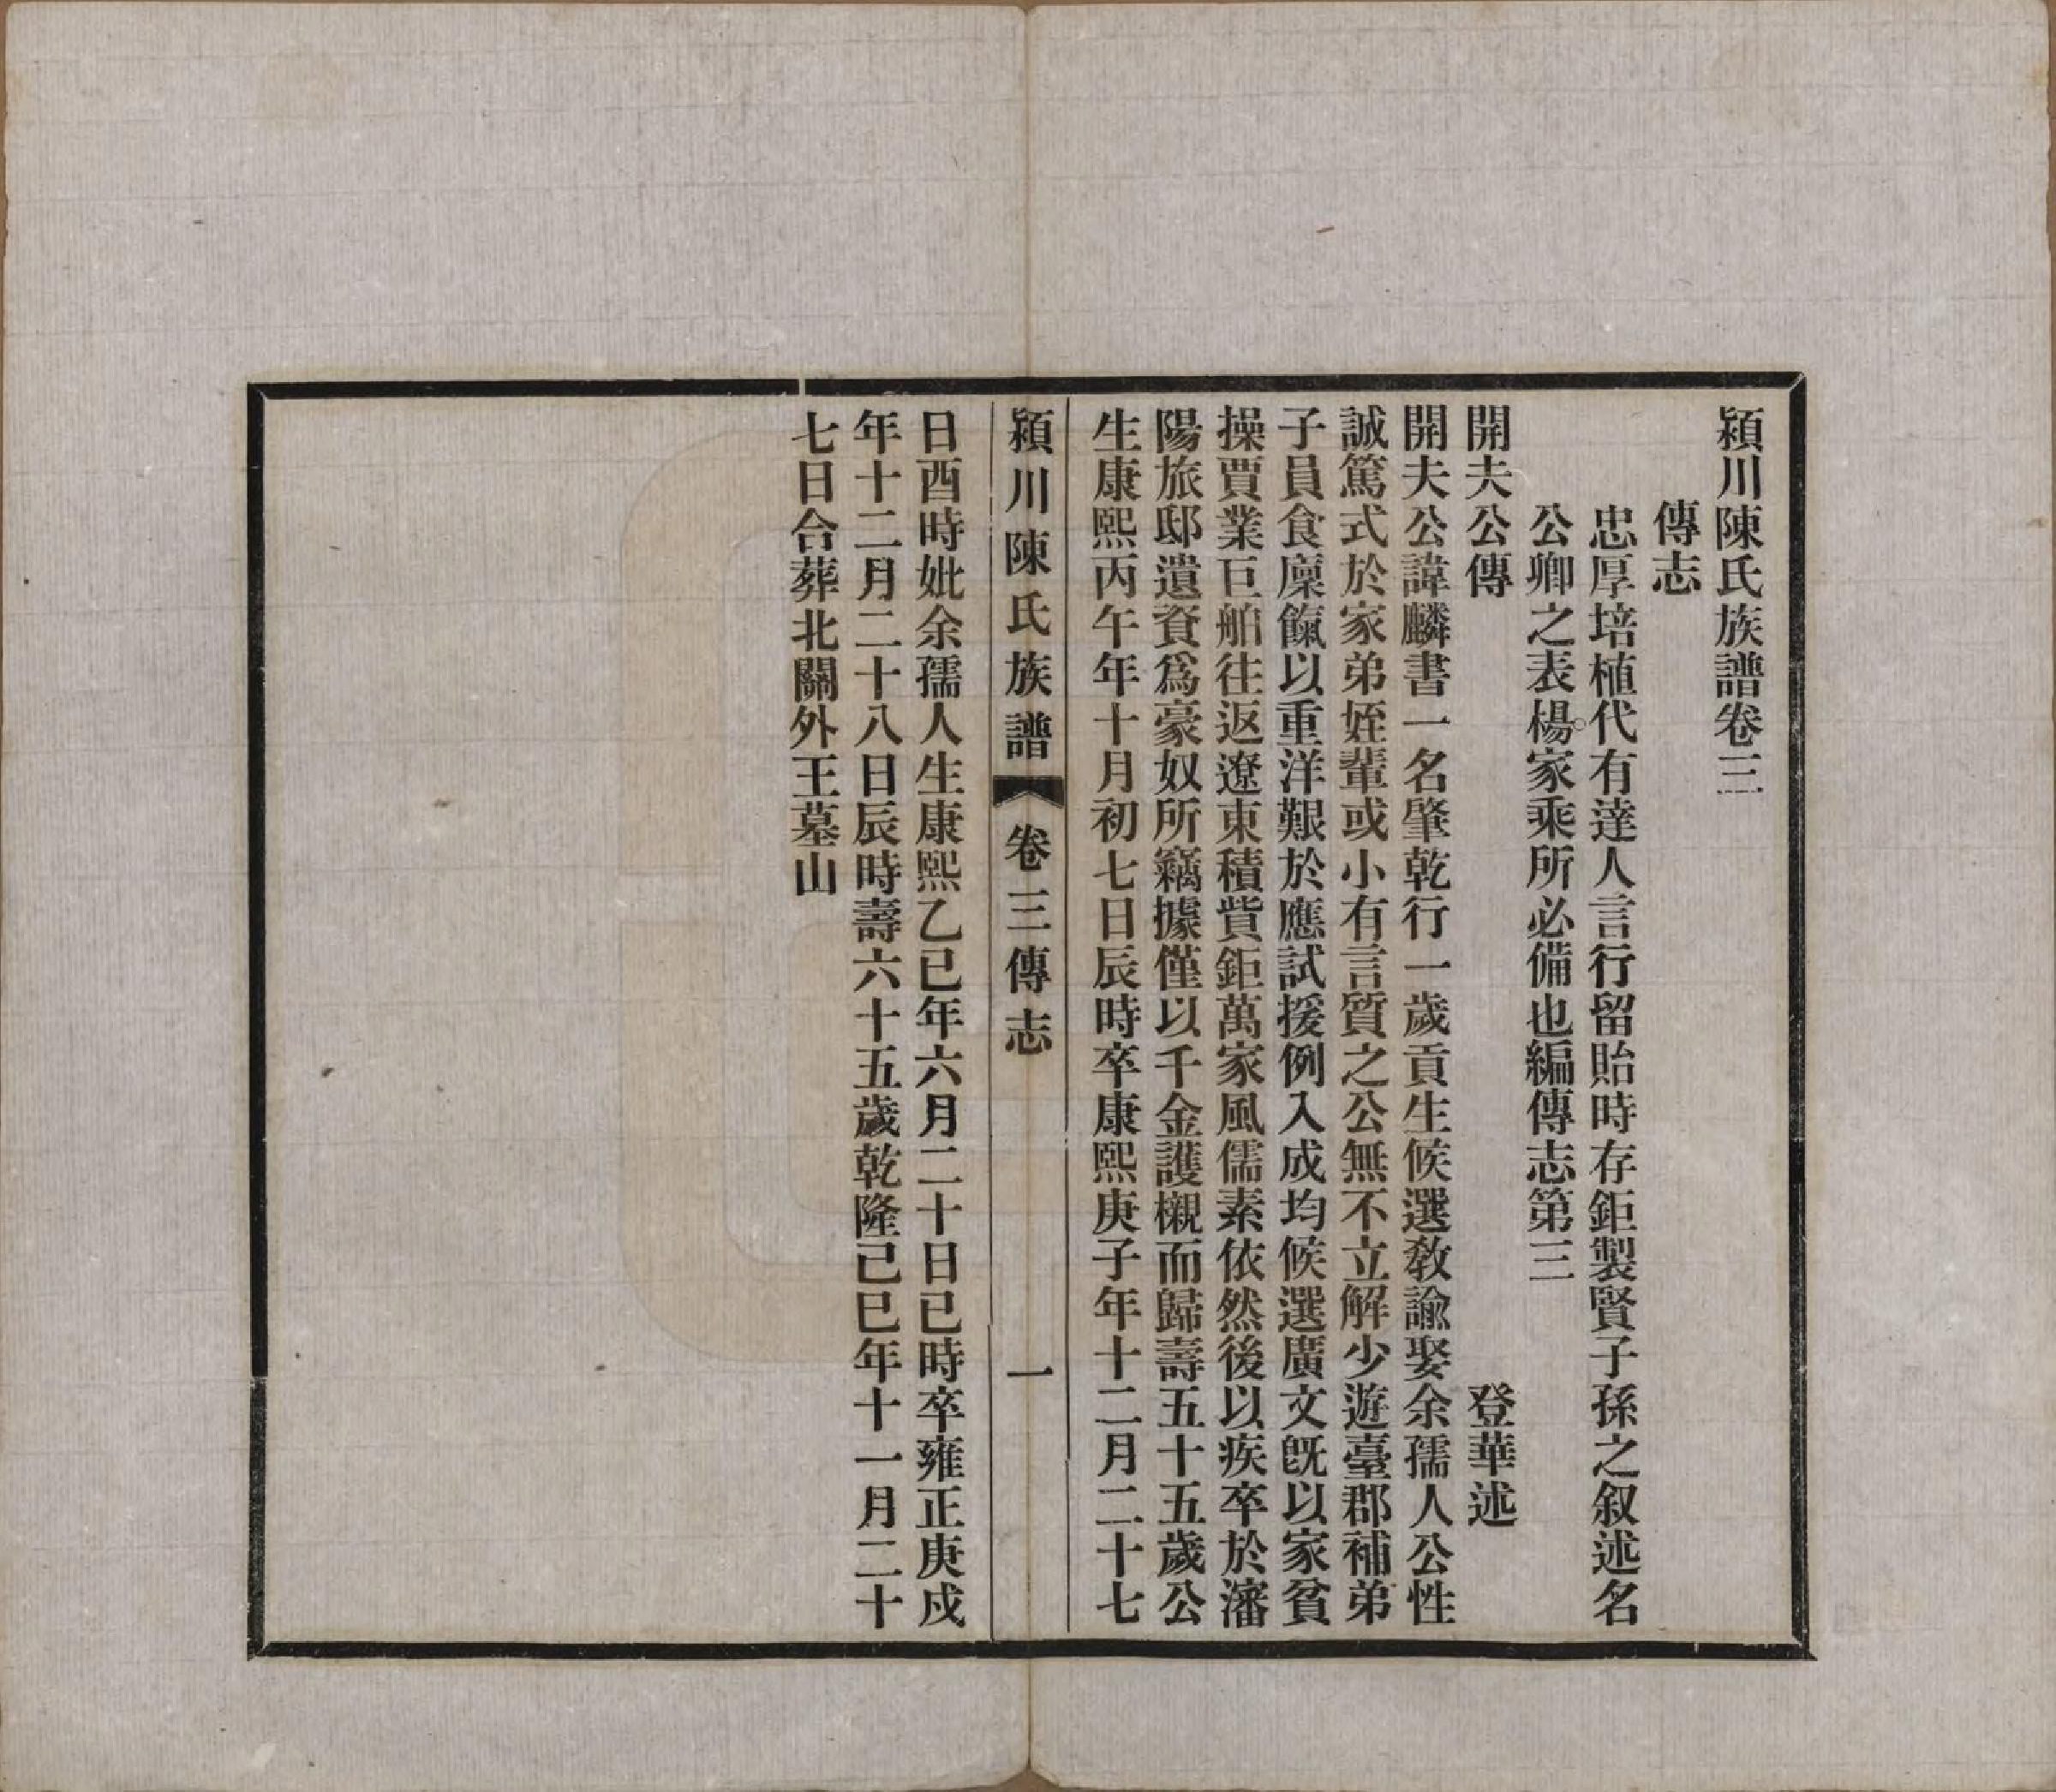 潁川陳氏族譜卷三
傳志
忠厚培植代有達人言行留貽時存鉅製賢子孫之叙述名
公卿之表楊家乘所必備也編傳志第三
開夫公傳 登華述
開夫公諱麟書一名肇乾行一歲貢生候選教諭娶余孺人公性
誠篤式於家弟姪輩或小有言質之公無不立解少遊臺郡補弟
子員食廩餼以重洋艱於應試援例入成均候選廣文既以家貧
操賈業巨舶往返遼東積貲鉅萬家風儒素依然後以疾卒於瀋
陽旅邸遺資爲豪奴所竊據僅以千金護櫬而歸壽五十五歲公
生康熙丙午年十月初七日辰時卒康熙庚子年十二月二十七
潁川陳氏族譜 卷三傳志 一
日酉時妣余孺人生康熙乙已年六月二十日已時卒雍正庚戍
年十二月二十八日辰時壽六十五歲乾隆己巳年十一月二十
七日合葬北關外王墓山